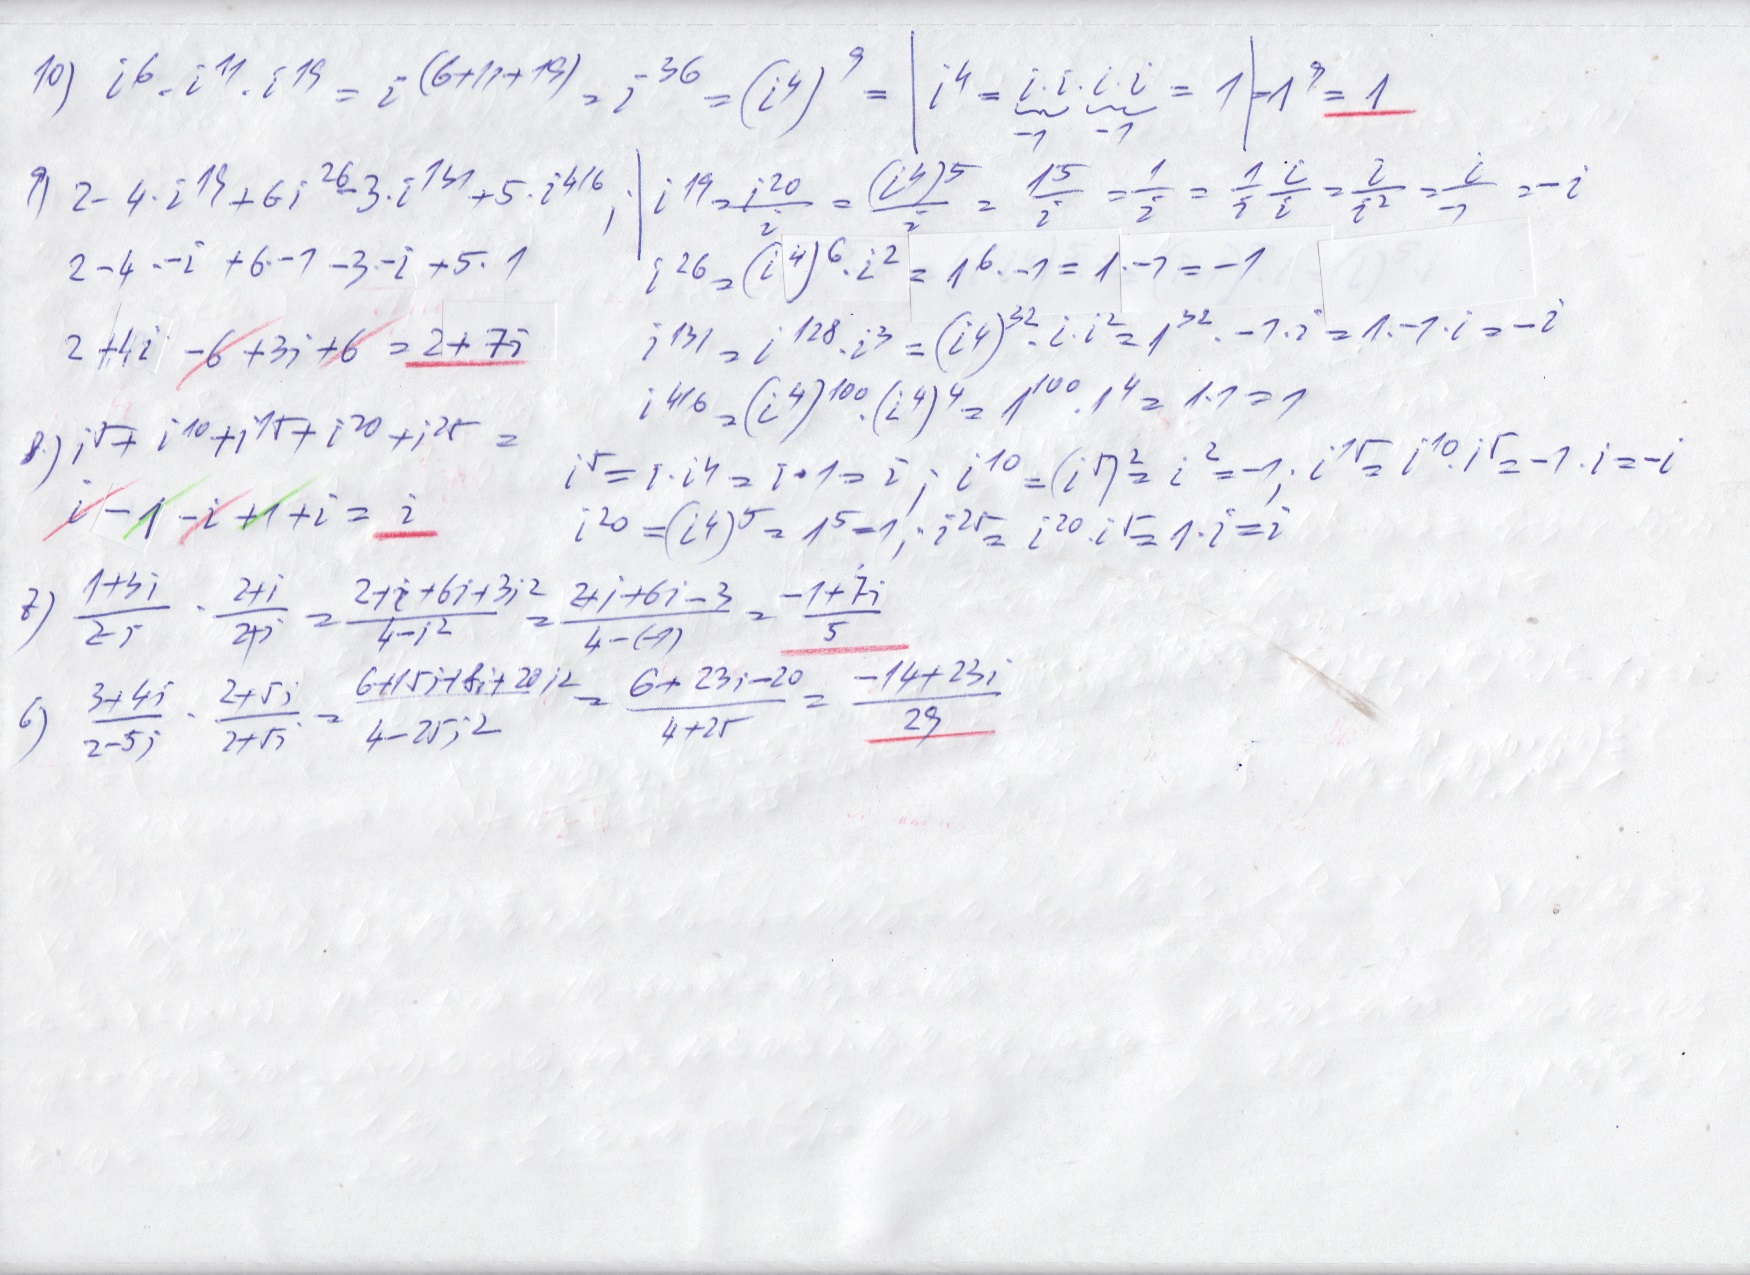 10) i⁶ · i¹¹ · i¹⁹ = i^(6+11+19) = i³⁶ = (i⁴)⁹ = | i⁴ = i·i·i·i = 1 | = 1⁹ = 1
-1 -1
9) 2 - 4·i¹⁹ + 6i²⁶ - 3·i¹³¹ + 5·i⁴¹⁶ ; | i¹⁹ = i²⁰/i = (i⁴)⁵/i = 1⁵/i = 1/i = 1/i · i/i = i/i² = i/-1 = -i
2 - 4 · -i + 6·-1 - 3·-i + 5·1 i²⁶ = (i⁴)⁶·i² = 1⁶·-1 = 1·-1 = -1
2 + 4i - 6 + 3i + 6 = 2 + 7i i¹³¹ = i¹²⁸·i³ = (i⁴)³²·i·i² = 1³²·-1·i = 1·-1·i = -i
i⁴¹⁶ = (i⁴)¹⁰⁰·(i⁴)⁴ = 1¹⁰⁰·1⁴ = 1·1 = 1
8.) i⁵ + i¹⁰ + i¹⁵ + i²⁰ + i²⁵ =
i⁵ = i·i⁴ = i·1 = i ; i¹⁰ = (i⁵)² = i² = -1 ; i¹⁵ = i¹⁰·i⁵ = -1·i = -i
i - 1 - i + 1 + i = i i²⁰ = (i⁴)⁵ = 1⁵ = 1 ; i²⁵ = i²⁰·i⁵ = 1·i = i
7) (1+3i)/(2-i) · (2+i)/(2+i) = (2+i+6i+3i²)/(4-i²) = (2+i+6i-3)/(4-(-1)) = (-1+7i)/5
6) (3+4i)/(2-5i) · (2+5i)/(2+5i) = (6+15i+8i+20i²)/(4-25i²) = (6+23i-20)/(4+25) = (-14+23i)/29